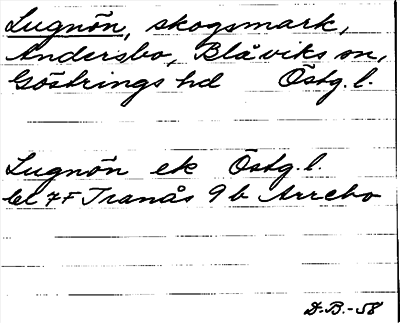 Lugnön, skogsmark,
Andersbo, Blåviks sn,
Göstrings hd Östg. l.
Lugnön ek Östg. l.
bl 7F Tranås 9 b Arrebo
D.B.-58